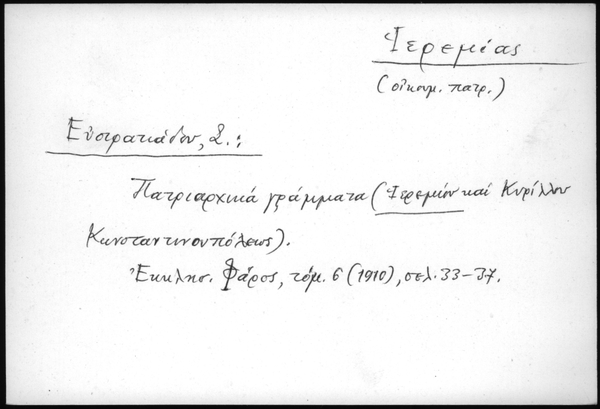 Ἱερεμίας
(οἰκουμ. πατρ.)
Εὐστρατιάδου, Σ.:
Πατριαρχικά γράμματα (Ἱερεμίου καί Κυρίλλου
Κωνσταντινουπόλεως).
Ἐκκλησ. Φάρος, τόμ. 6 (1910), σελ. 33-37.